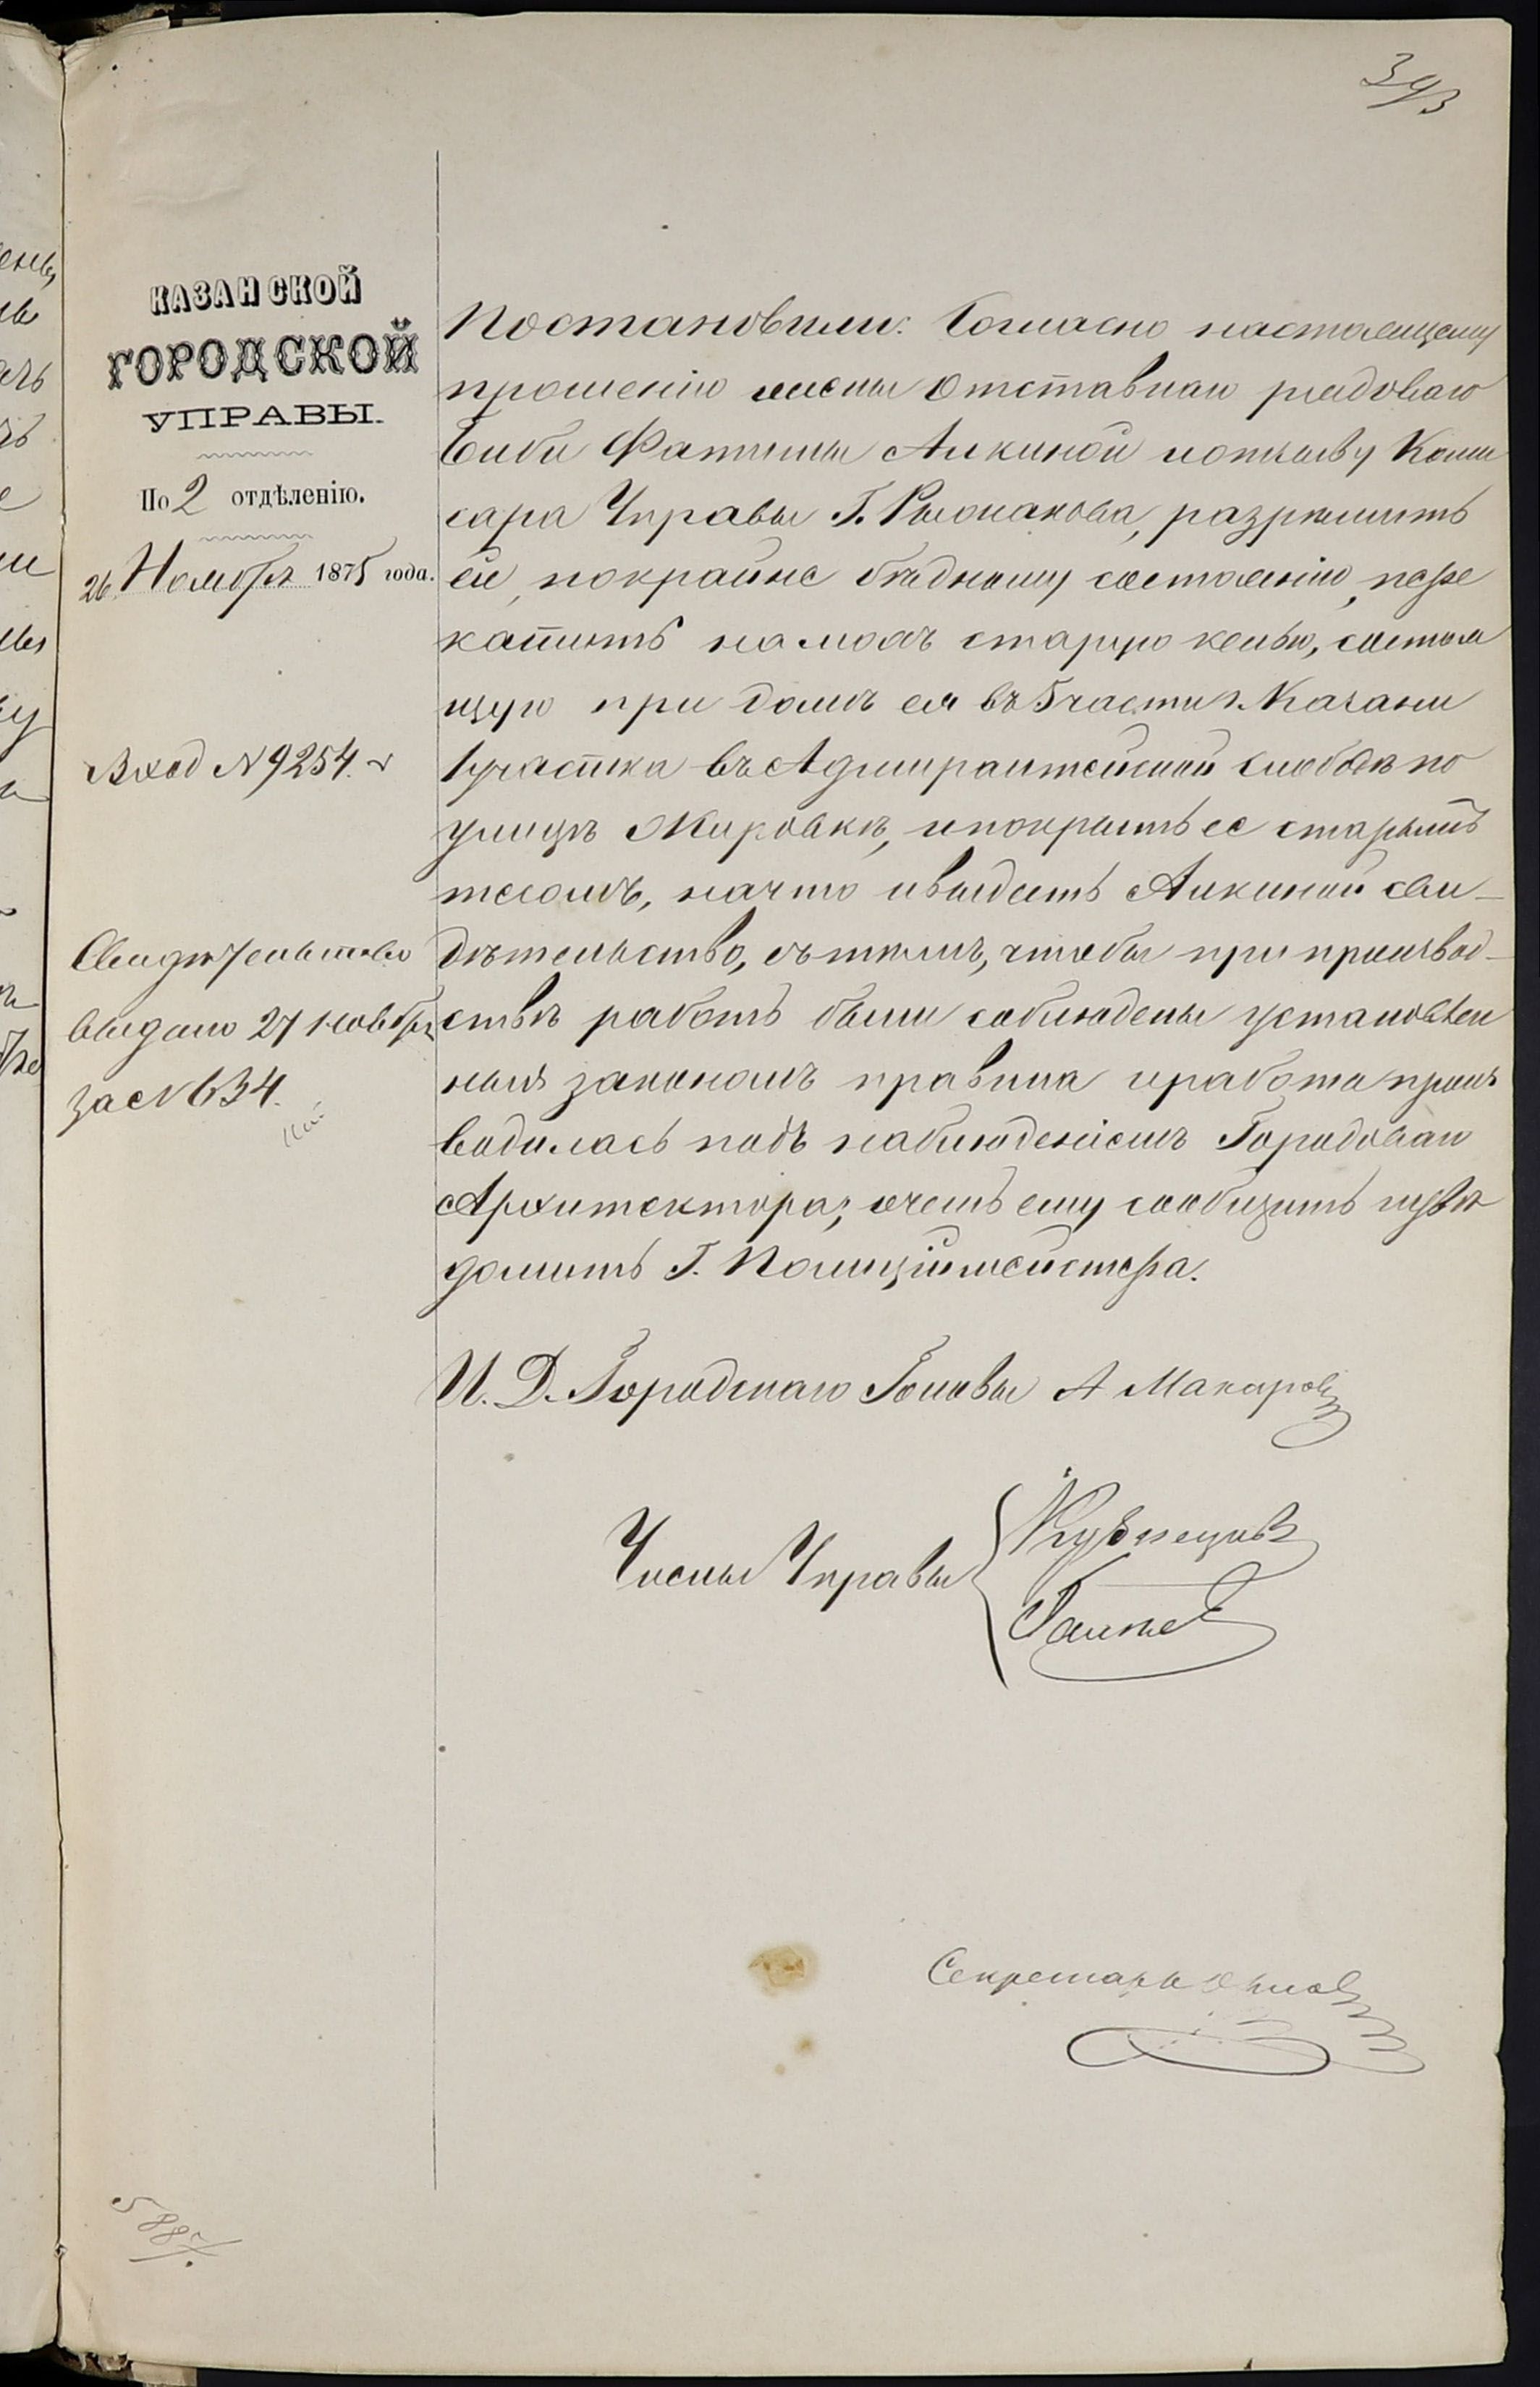 393
КАЗАНСКОЙ
ГОРОДСКОЙ
УПРАВЫ.
По 2 отдѣленію.
26 Ноября 1875 года.
Вход № 9254.
Свидѣтельство
выдано 27 ноября
за № 634.
Постановили: Согласно настоящему
прошенію жены Отставнаго рядоваго
Биби Фатимы Алкиной и отзыву Коми
сара Управы Г. разрѣшить
ей, по крайне бѣдному состоянію, пере
катить на мохъ старую келью, состоя
щую при домѣ ея въ 5 части г. Казани
1 участка въ Адмиралтейской слободѣ по
улицѣ Жировкѣ, и покрыть ее старымъ
тесомъ, на что и выдать Алкиной сви-
дѣтельство, съ тѣмъ, чтобы при производ-
ствѣ работъ были соблюдены установлен
ныя закономъ правила и работа произ
водилась подъ наблюденіемъ Городоваго
Архитектора; о чемъ ему сообщить и увѣ
домить Г. Полиціймейстера.
И. Д. Городскаго Головы А Макаровъ
Члены Управы
Кузнецовъ
Секретарь